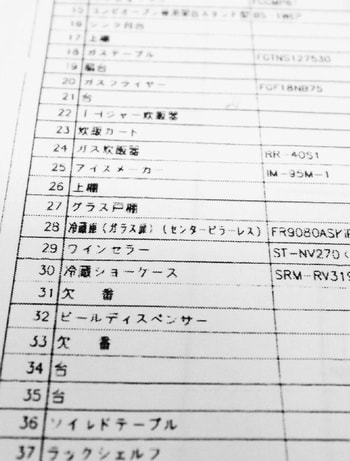 16 シンク付台
17 上棚
18 ガステーブル FGTNS127530
19 脇台
20 ガスフライヤー FGF18NB75
21 台
22 Iージャー炊飯器
23 炊飯カート
24 ガス炊飯器 RR-40S1
25 アイスメーカー IM-95M-1
26 上棚
27 グラス戸棚
28 冷蔵庫(ガラス扉)(センターピラーレス) FR9080ASK
29 ワインセラー ST-NV270(
30 冷蔵ショーケース SRM-RV319
31 欠 番
32 ビールディスペンサー
33 欠 番
34 台
35 台
36 ソイルドテーブル
37 ラックシェルフ